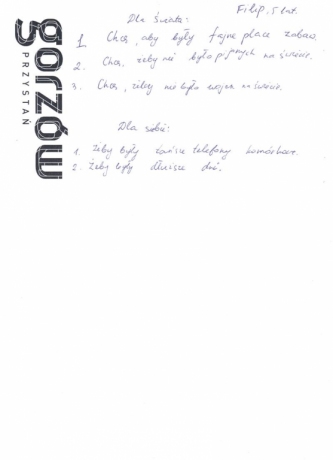 gorzów
PRZYSTAŃ
Filip, 5 lat.
Dla świata:
1 Chcę, aby były fajne place zabaw
2. Chcę, żeby nie było pijanych na świecie.
3. Chcę, żeby nie było wojen na świecie.
Dla siebie:
1. Żeby były tańsze telefony komórkowe.
2. Żeby były dłuższe dni.